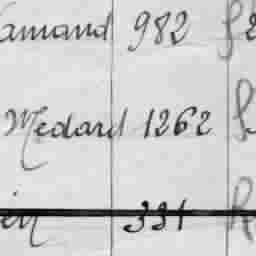 amand 982
Medard 1262
in 331